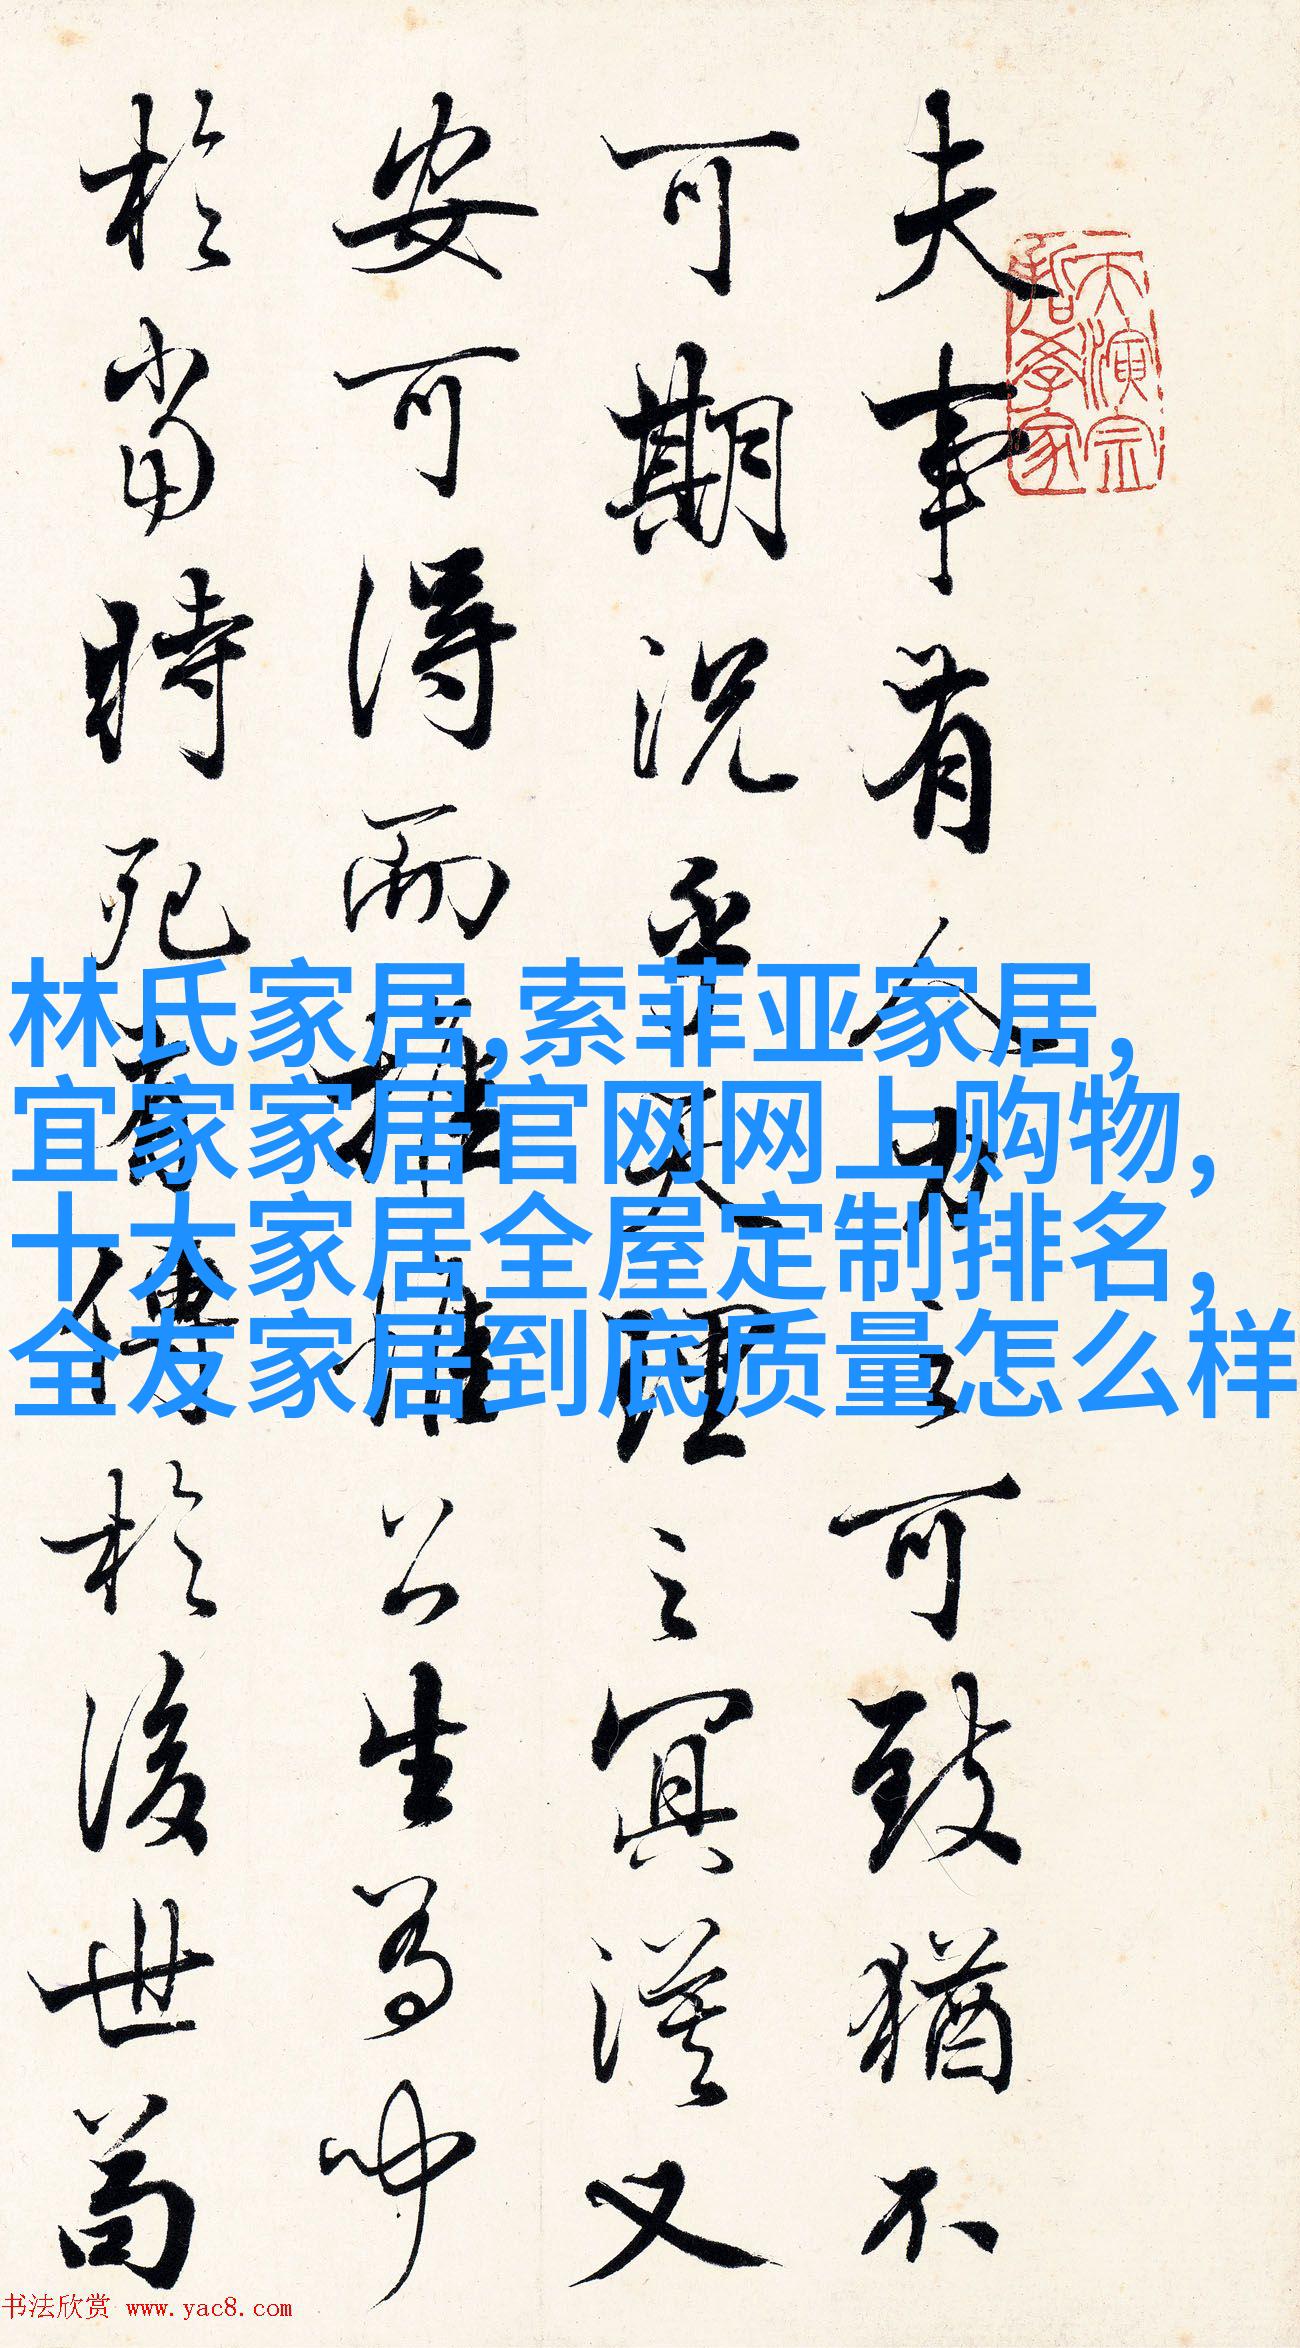 夫事有人力之可致猶不
可期況乎天理之冥漠又
安可得而推惟公生有聞
於當時死有傳於後世苟
天演宗
哲學家
林氏家居,索菲亚家居,
宜家家居官网网上购物,
十大家居全屋定制排名,
全友家居到底质量怎么样
书法欣赏 www.yac8.com